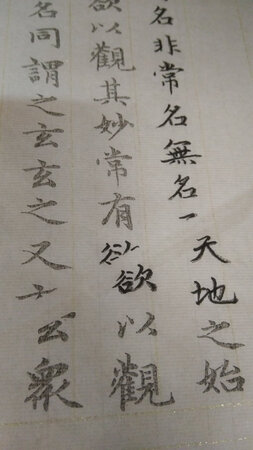 名非常名無名一天地之始
欲以觀其妙常有欲以觀
名同謂之玄玄之又公衆